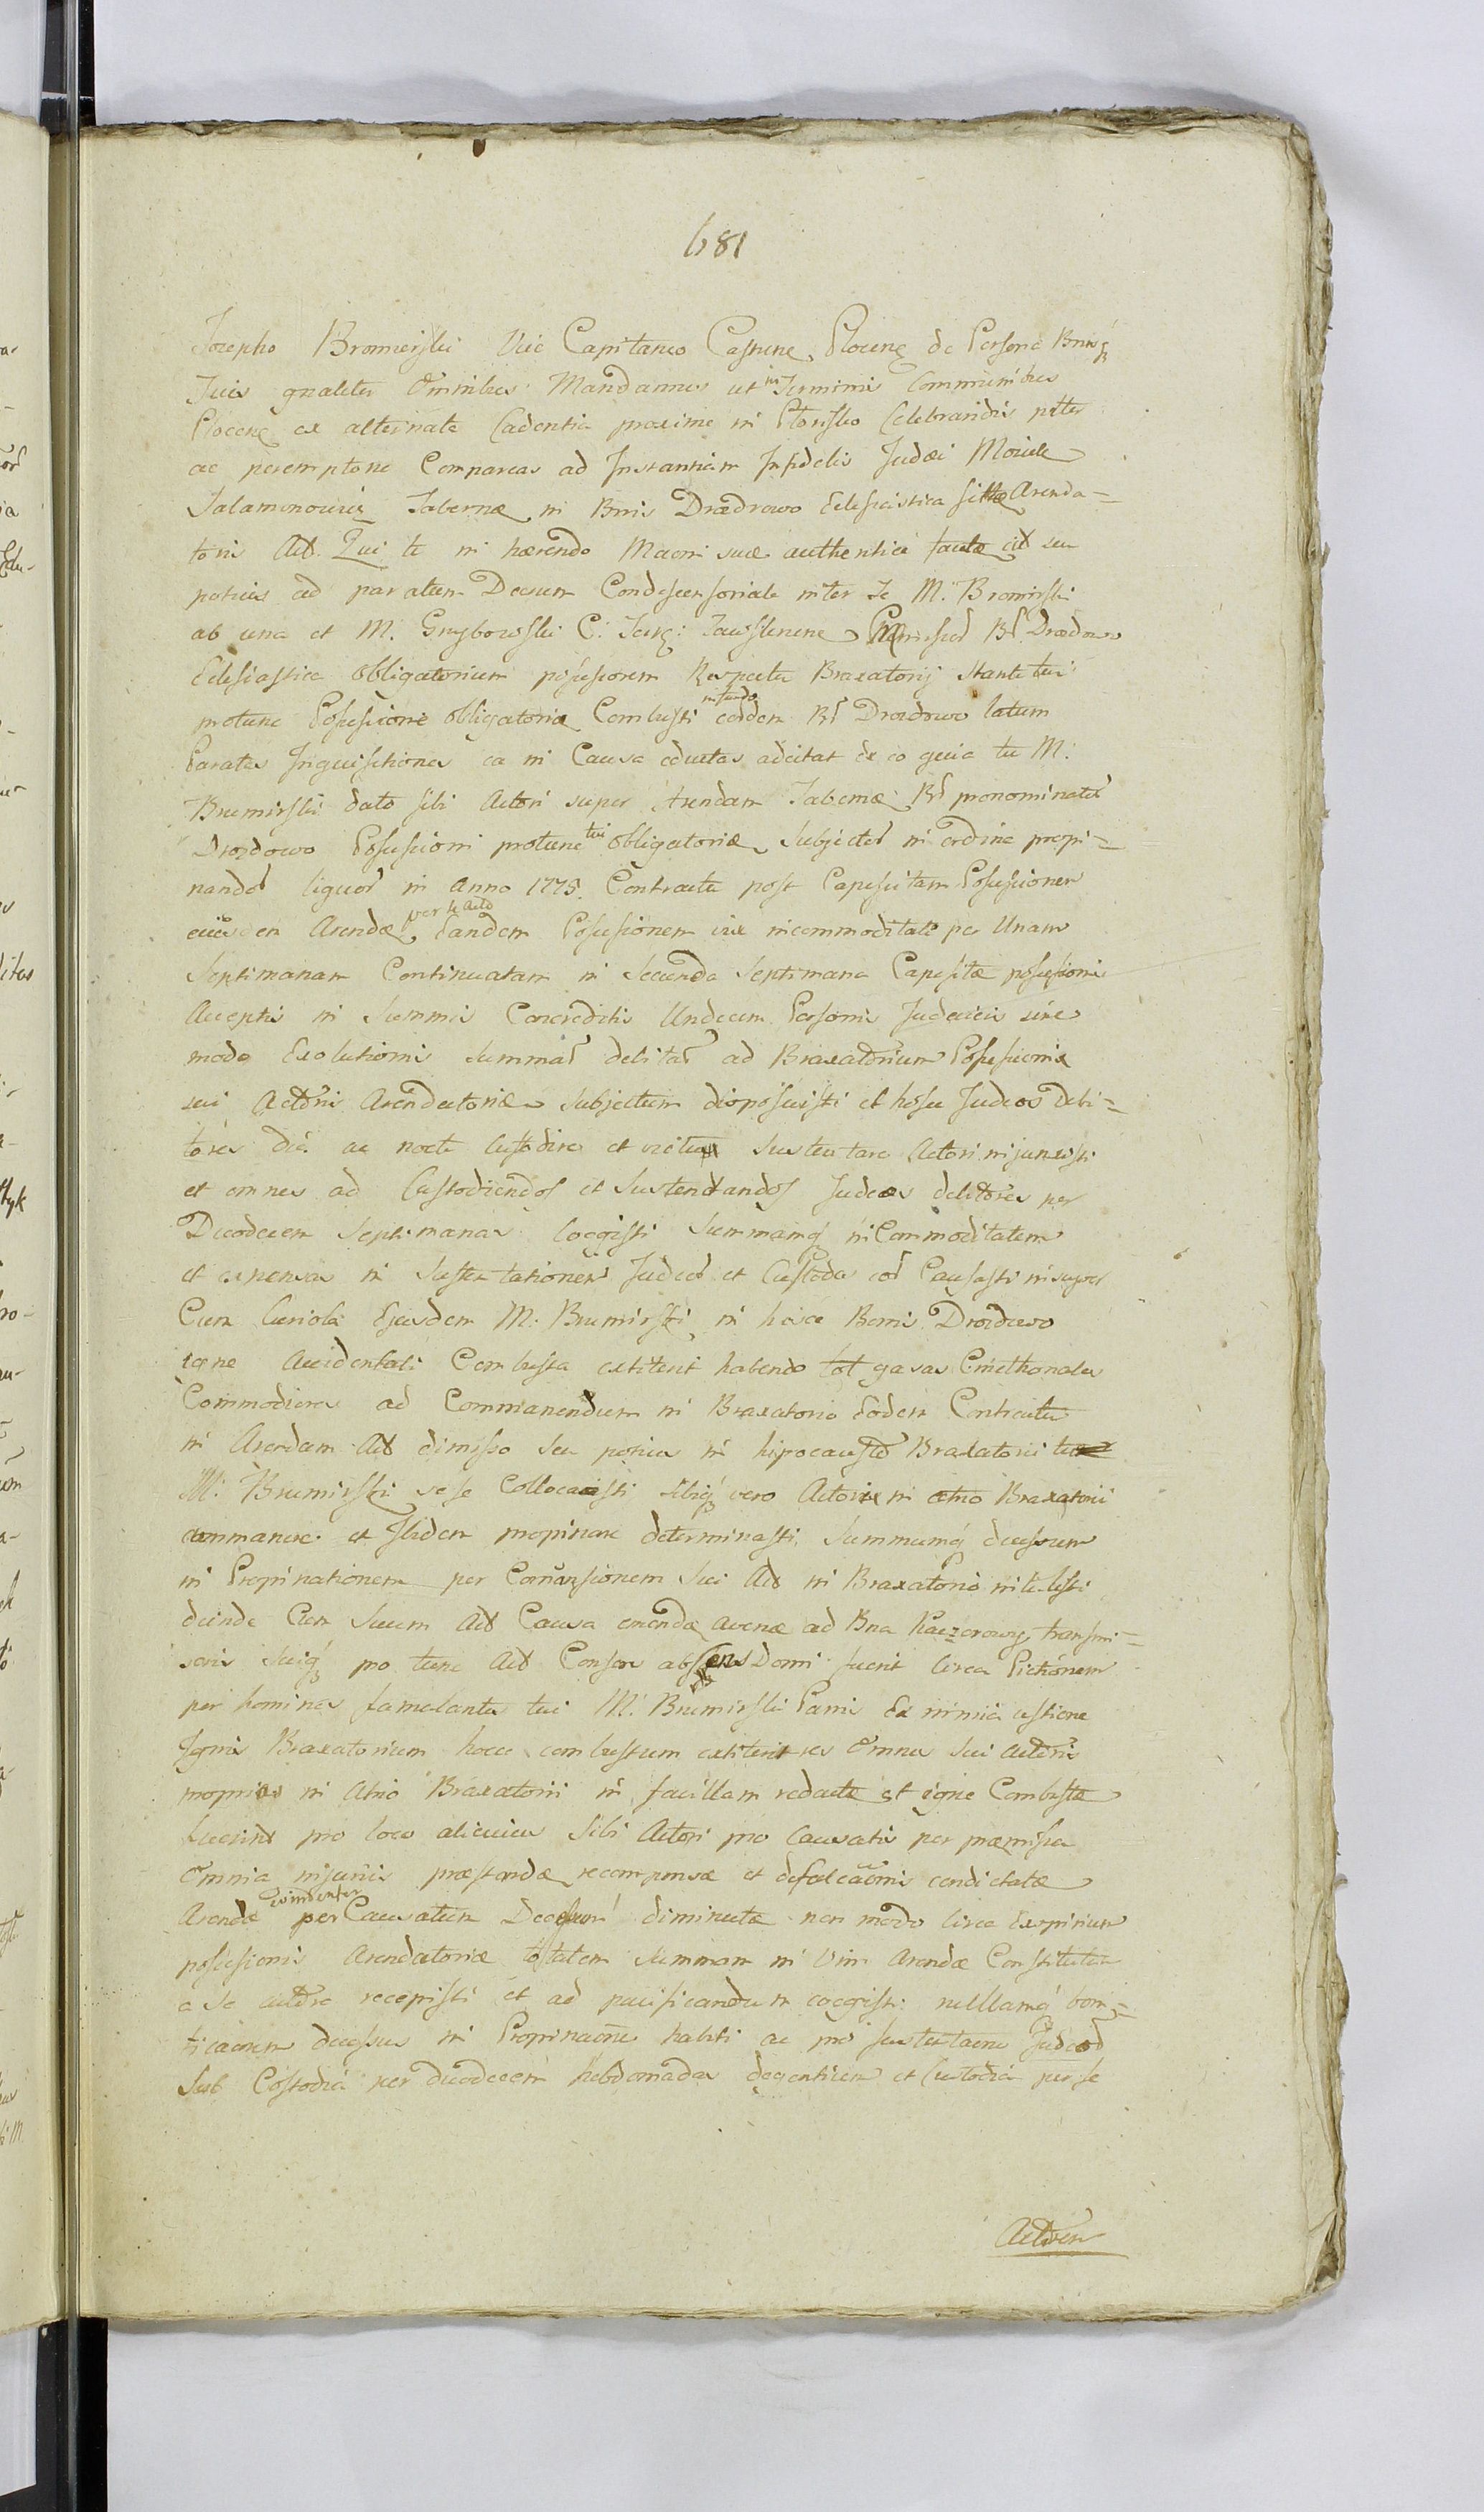 681
Josepho Bromierski Vice Capitaneo Castrens. Plocens. de Persona Bnisq
Tuis gnaliter Omnibus Mandamus ut in Terminis Communibus
Plocens ex alternata Cadentia proxime in Plonsko Celebrandis ptter
ac peremptorie Compareas ad Instantiam Infidelis Judæi Moszek
Salamonowicz Tabernæ in Bnis Drozdowo Eclesiastica sittæ Arenda=
toris Act. Qui te in hærendo Macni suæ authentice factæ cit seu
potius ad paratum Decisum Condescensoriale inter Te M. Bromirski
ab una et M. Grzybowski C. Terr: Zawskrnens Præmissor Br Drozdowo
Eclesiastica obligatorium possessorem Respectu Braxatorij stante tui
protunc Possessione obligatoria Combusti in fundo eorden Br Drozdowo latum
Paratas Inquisitiones ea in Causa eductas adcitat de eo quia tu M.
Brumirski dato sibi Actori super Arendam Tabernæ Br pronominator
Drozdowo Possessioni protunc tui obligatoriæ Subjector in ordine propi=
nandor liquor in Anno 1778. Contractu post Capescitam Possessionem
eiusdem Arendæ per te Acto Eandem Possesionem sine incommoditate per Unam
Septimanam Continuatam in Secunda Septimana Capesitæ possessionis
Acceptis in Summis Concreditis Undecem Personis Judaicis sine
modo Exolutionis Summar debitar ad Braxatorium Possessionis
sui Actoris Arendatoriæ Subjectum disposuisti et hosce Judeos Debi=
tores die ac nocte Custodire et victu sustentare Actori injunxisti
et omnes ad Custodiendos et Sustentandos Judeos debitores per
Duodecem Septimanas Coegisti Summamq inCommoditatem
et expensas in Sustentationem Judeor et Custodia eor Causasti insuper
Cum Curiola Ejusdem M. Brumirski in hisce Bonis Drozdowo
igne Accidentali Combusta extiterit habendo tot gazas Cmethonales
Commodiores ad Commanendum in Braxatorio Eodem Contractu
in Arendam Act dimisso seu potius in hipocausto Braxatorii
M. Brumirski sese Collocasti sibiq vero Actori in atrio Braxatorii
commanere et Ibidem propinare determinasti Summumq decessum
in Propinationem per Comansionem Sui Act in Braxatorio intulisti
deinde Cum Suum Act Causa emendæ avenæ ad Bna Kaczorowy transmi=
seris Suiq pro tunc Act Consors absens Domi fuerit Circa Pistionem
per homines famulantes tui M. Brumirski Panis Ex nimia ustione
Ignis Braxatorium hocce combustum extiterit res Omnes Sui Actoris
proprias in Atrio Braxatorii in favillam redactæ et igne Combustæ
fuerint pro loco alicuius Sibi Actori pro Causatis per præmissa
Omnia injuriis præstandæ recompensæ et defalcationis condictatæ
Arendæ evindenter per Causatum Decessum diminutæ non modo Circa Expirium
possesionis Arendatoriæ totalem Summam in Vim Arendæ Constitutam
a Se Actore recepisti et ad pacificandum coegisti nullamq boni=
ficaonem decessus in Propinaone habiti ac pro sustentaone Judeor
Sub Costodia per duodecem hebdomadas degentium et Custodia per se
Actorem